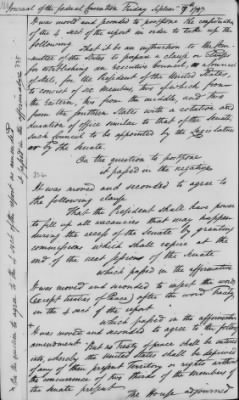 Journal of the federal Convention Friday September 7th 1787
It was moved and seconded to postpone the consideration
of the 4 sect. of the report in order to take up the
following.
That it be an instruction to the Com-
mittee of the States to prepare a clause or clauses
for establishing an executive Council, as a Council
of State, for the President of the United States,
to consist of six members, two of which from
the Eastern, two from the middle, and two
from the southern States with a rotation and
duration of office similar to that of the Senate
such Council to be appointed by the Legislature
or by the Senate.
On the question to postpone
it passed in the negative
It was moved and seconded to agree to
the following clause
That the President shall have power
to fill up all vacancies that may happen
during the recess of the Senate by granting
commissions which shall expire at the
end of the next session of the Senate
which passed in the affirmative
It was moved and seconded to insert the words
(except treaties of Peace) after the word Treaty
in the 4 sect of the report
which passed in the affirmative
It was moved and seconded to agree to the following
amendment. But no Treaty of peace shall be entered
into, whereby the United States shall be deprived
of any of their present Territory or rights without
the concurrence of two thirds of the Members of
the Senate present.
The House adjourned
On the question to agree to the 4 sect of the report as amended
it passed in the affirmative